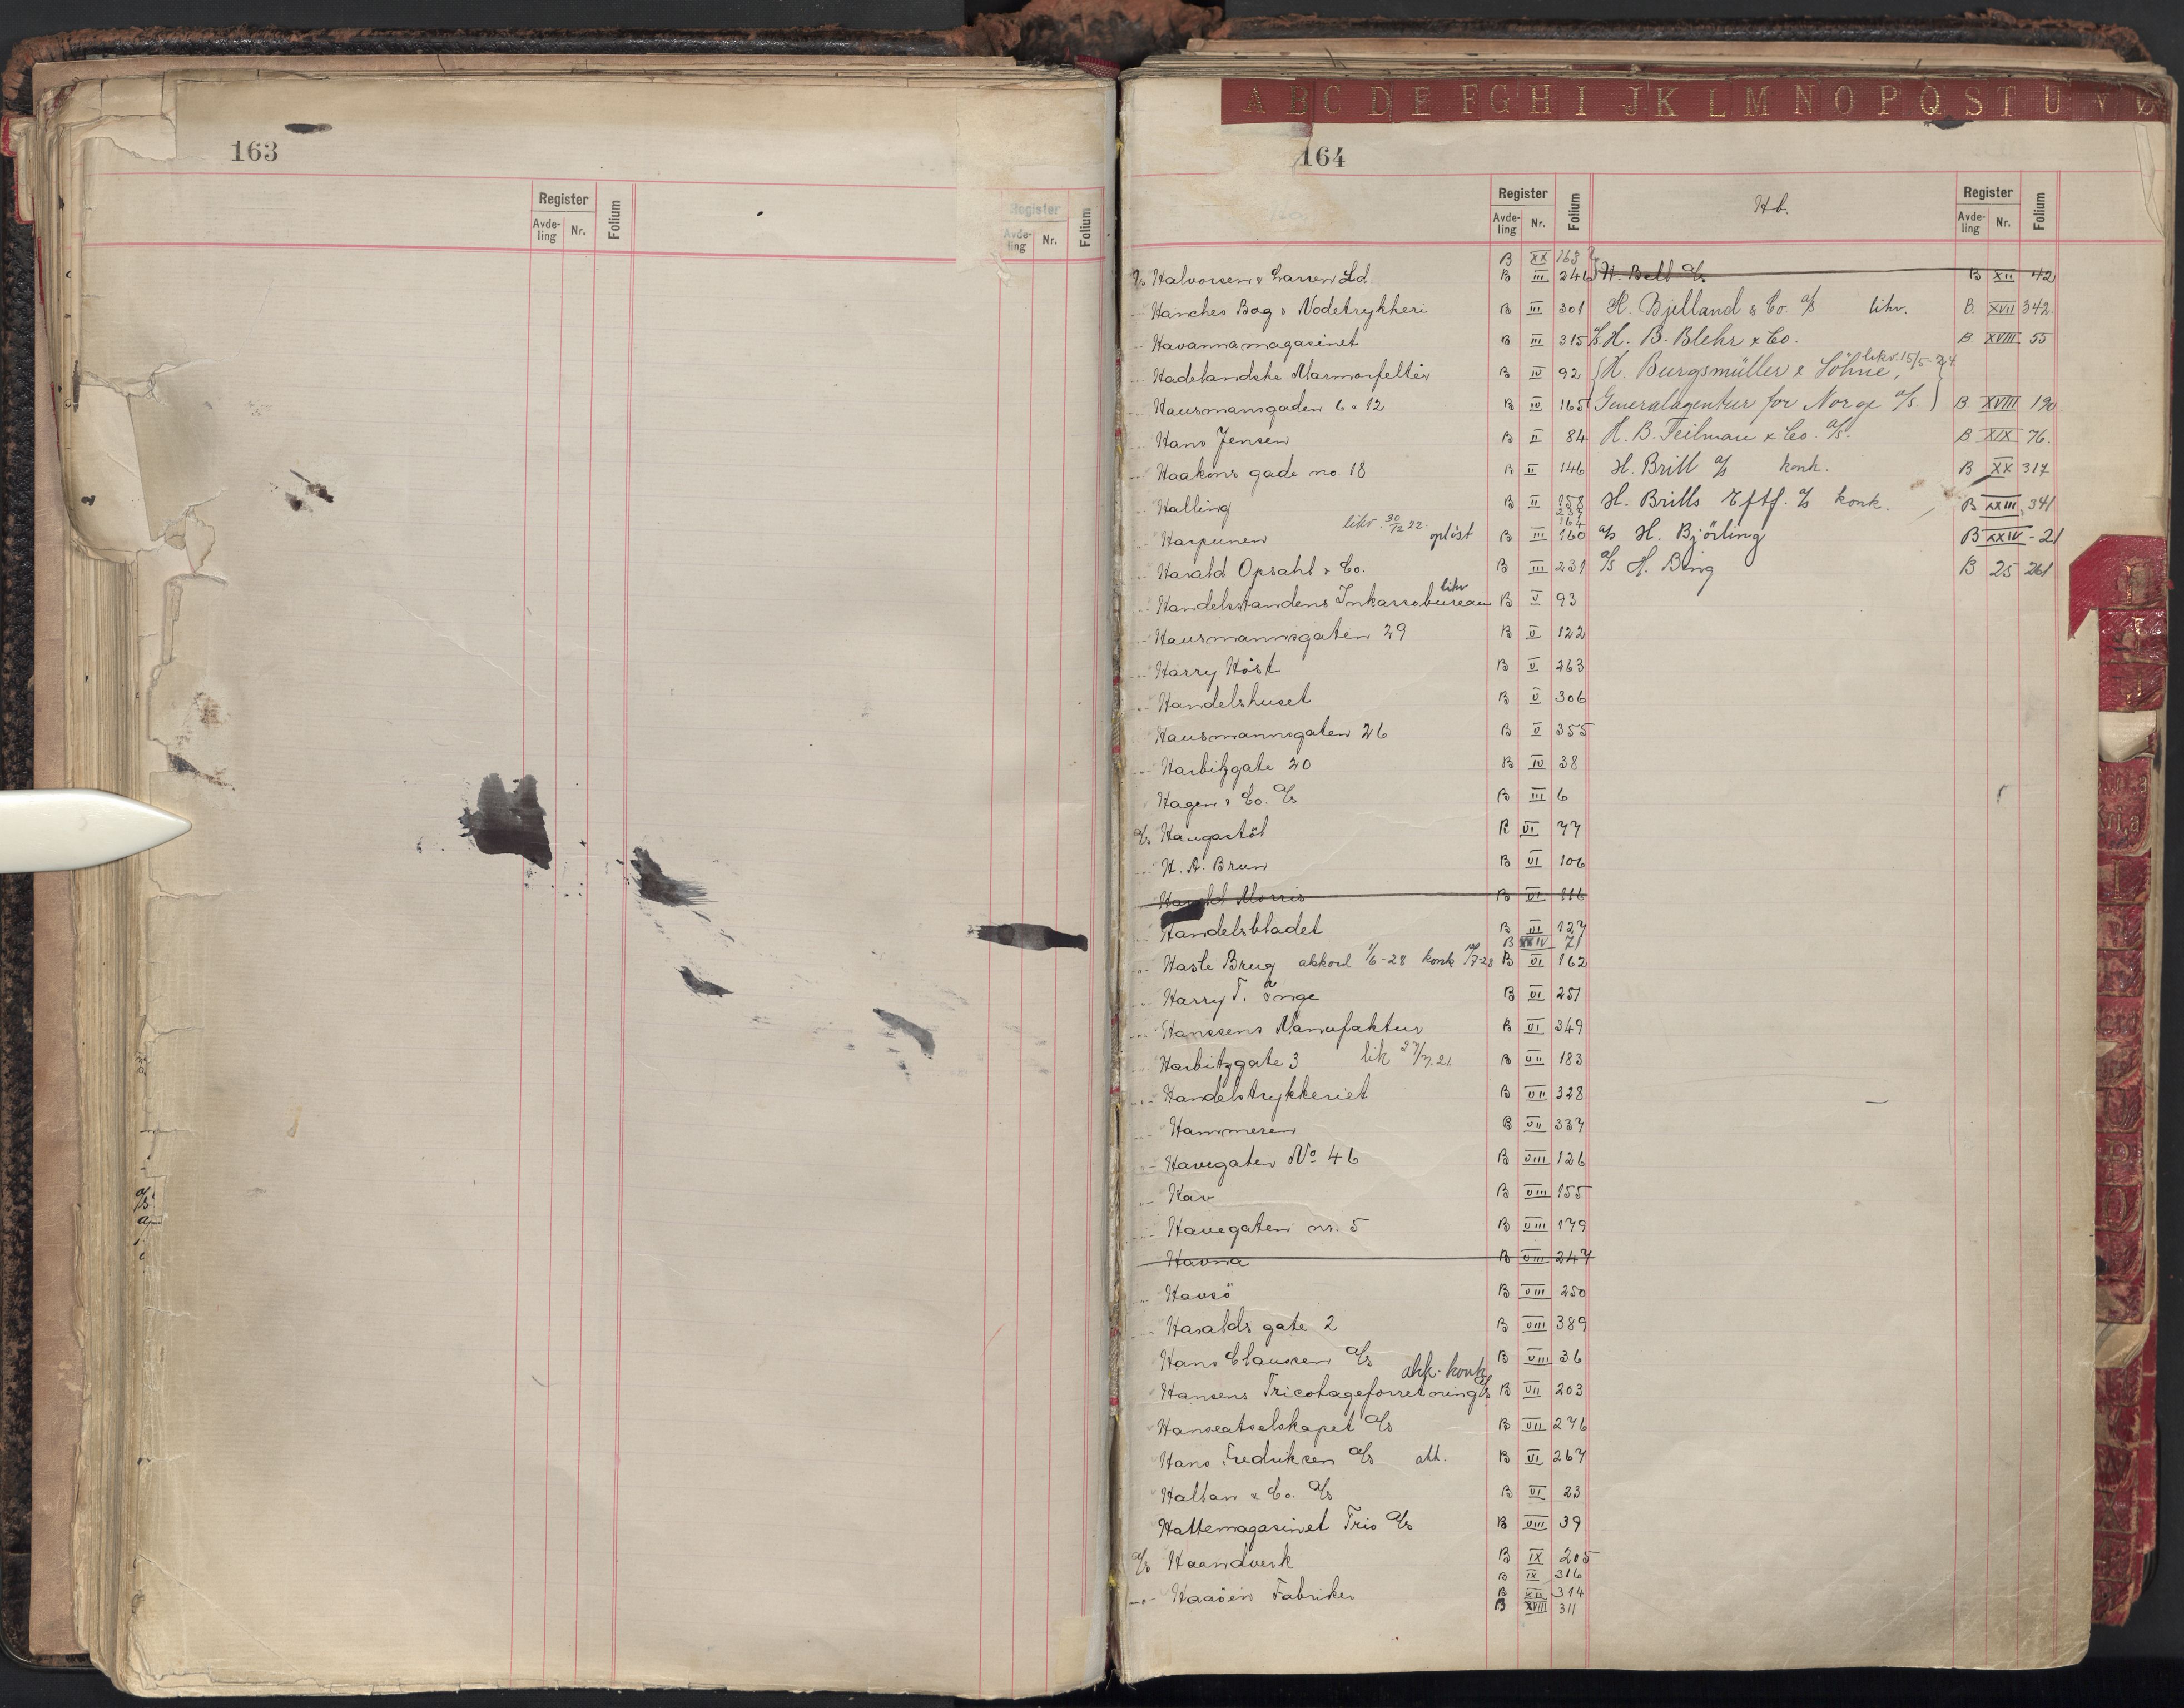 163
Register
Avde-
ling
Nr.
Folium
Register
Avde-
ling
Nr.
Folium
A B C D E F G H I J K L M N O P Q S T U V Ø
164
Register
Avde-
ling
Nr.
Folium
H b.
Register
Avde-
ling
Nr.
Folium
B XX 163
A/s Halvorsen & Larsen Ld. B III 246
Hanches Bog & Nodetrykkeri B III 301
Havannamagasinet B III 315
Hadelandske Marmorfelter B IV 92
Hausmansgaden 6 & 12 B IV 165
Hans Jensen B II 84
Haakons gade no. 18 B II 146
Halling B II 158
237
161
164
Harpunen likv. 30/12 22. opløst B III 160
Harald Opsahl & Co. B III 231
Handelsstandens Inkassobureau likv B V 93
Hausmannsgaten 29 B V 122
Harry Höst B V 263
Handelshuset B V 306
Hausmannsgaten 26 B V 355
Harbitzgate 20 B IV 38
Hagen & Co. A/s B III 6
A/s Haugastöl B VI 77
H. A. Brun B VI 106
Harald Morris B VI 116
Handelsbladet B VI 127
B XXIV 71
Hasle Brug akkord 1/6-28 konk B VI 162
Harry T. Inge B VI 251
Hanssens Manufaktur B VI 349
Harbitzgate 3 lik 27/7.21. B VII 183
Handelstrykkeriet B VII 328
Hammeren B VII 337
Havegaten No 46 B VIII 126
Hav B VIII 155
Havegaten nr. 5 B VIII 179
Havna B VIII 247
Havsö B VIII 250
Haralds gate 2 B VIII 389
Hans Clausen A/s B VIII 36
akk. konk
Hansens Tricotageforretning A/s B VII 203
Hanseatselskapet A/s B VII 276
Hans Fredriksen A/s B VI 267
Haltan & Co. A/s B VI 23
Hattemagasinet Trio A/s B VIII 39
A/s Haandverk B IX 205
B IX 316
Haaöen Fabriker B XII 314
B XVIII 311
H. Bell A/s B XII 42
H. Bjelland & Co. A/s likv. B. XVII 342.
A/s. H. B. Blehr & Co. B XVIII 55
H. Burgsmüller & Söhne, likv. 15/5-24.
Generalagentur for Norge A/s B XVIII 190
H. B. Feilman & Co. A/s. B XIX 76.
H. Brill A/s konk. B XX 317
H. Brills Eftf. A/s konk. B XXIII 341
A/s H. Björling B XXIV - 21
A/s H. Bing B 25 261